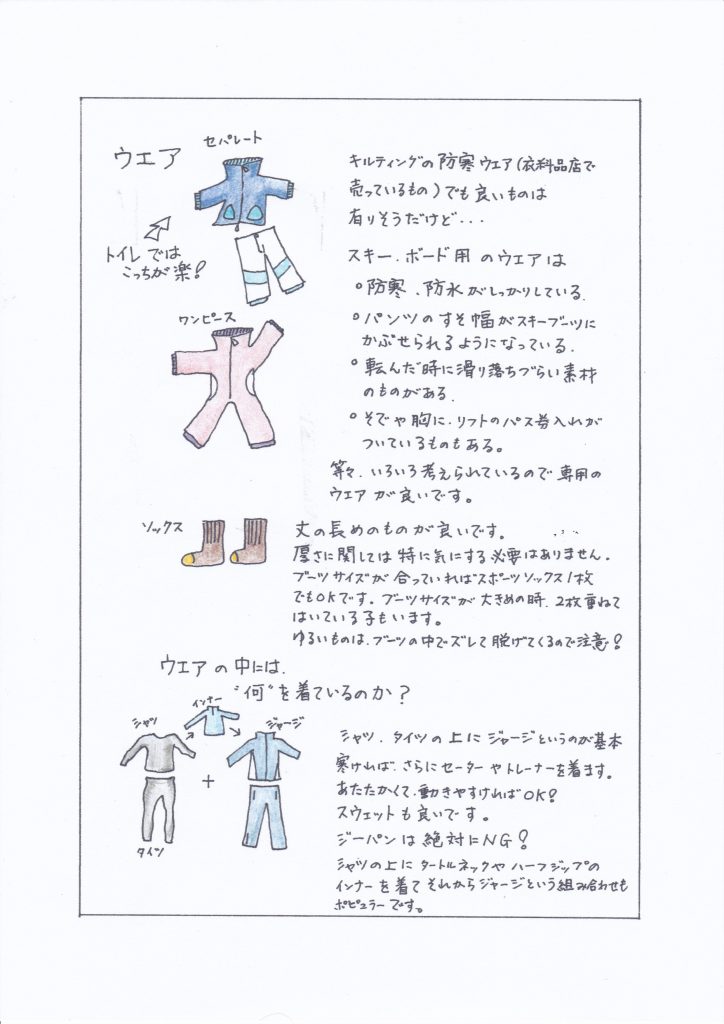 ウエア
セパレート
トイレでは
こっちが楽!
キルティングの防寒ウエア(衣料品店で
売っているもの)でも良いものは
有りそうだけど・・・
スキー.ボード用のウエアは
○防寒、防水がしっかりしている.
○パンツのすそ幅がスキーブーツに
かぶせられるようになっている.
○転んだ時に滑り落ちづらい素材
のものがある.
○そでや胸に.リフトのパス券入れが
ついているものもある。
等々.いろいろ考えられているので専用の
ウエアが良いです。
ワンピース
ソックス
丈の長めのものが良いです。
厚さに関しては特に気にする必要はありません.
ブーツサイズが合っていればスポーツソックス1枚
でもOKです。ブーツサイズが大きめの時.2枚重ねて
はいている子もいます。
ゆるいものは.ブーツの中でズレて脱げてくるので注意!
ウエアの中には.
"何"を着ているのか?
シャツ
インナー
ジャージ
+
タイツ
シャツ.タイツの上にジャージというのが基本
寒ければ.さらにセーターやトレーナーを着ます。
あたたかくて.動きやすければOK!
スウェットも良いです。
ジーパンは絶対にNG!
シャツの上にタートルネックやハーフジップの
インナーを着てそれからジャージという組み合わせも
ポピュラーです。